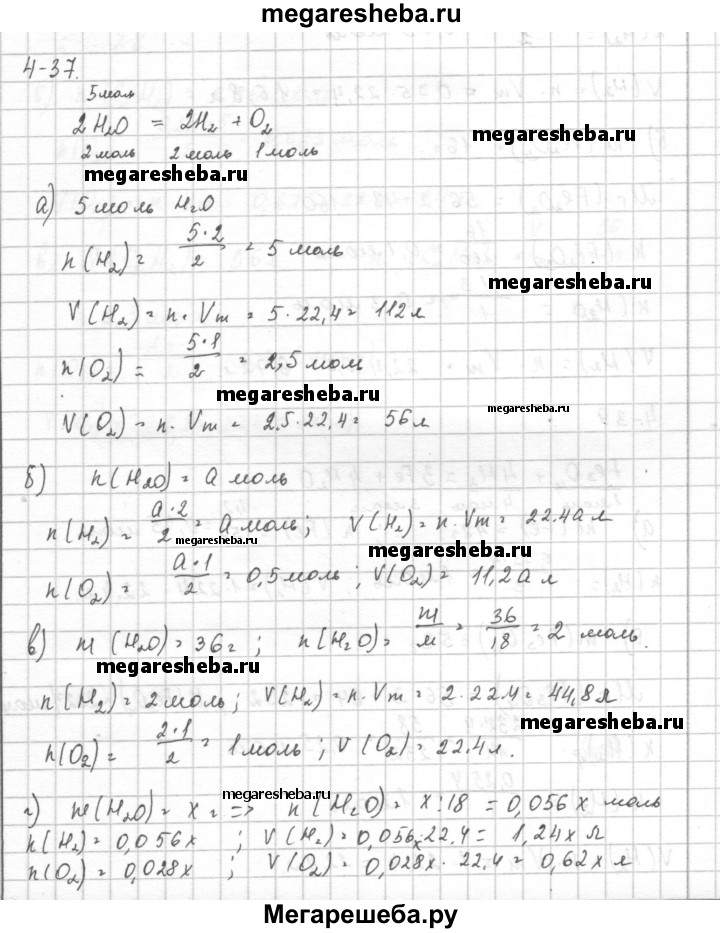 megaresheba.ru
4-37.
5 моль
2H₂O = 2H₂ + O₂
megaresheba.ru
2 моль 2 моль 1 моль
megaresheba.ru
а) 5 моль H₂O
n(H₂) = 5·2/2 = 5 моль
megaresheba.ru
V(H₂) = n·Vm = 5·22,4 = 112 л
n(O₂) = 5·1/2 = 2,5 моль
megaresheba.ru
megaresheba.ru
V(O₂) = n·Vm = 2,5·22,4 = 56 л
б) n(H₂O) = a моль
n(H₂) = a·2/2 = a моль; V(H₂) = n·Vm = 22.4a л
megaresheba.ru
megaresheba.ru
n(O₂) = a·1/2 = 0,5 моль; V(O₂) = 11,2a л
в) m(H₂O) = 36 г; n(H₂O) = m/M = 36/18 = 2 моль.
megaresheba.ru
n(H₂) = 2 моль; V(H₂) = n·Vm = 2·22.4 = 44,8 л
megaresheba.ru
n(O₂) = 2·1/2 = 1 моль; V(O₂) = 22.4 л.
megaresheba.ru
г) m(H₂O) = x г => n(H₂O) = x:18 = 0,056x моль
n(H₂) = 0,056x; V(H₂) = 0,056x·22,4 = 1,24x л
n(O₂) = 0,028x; V(O₂) = 0,028x·22,4 = 0,62x л
Мегарешеба.ру